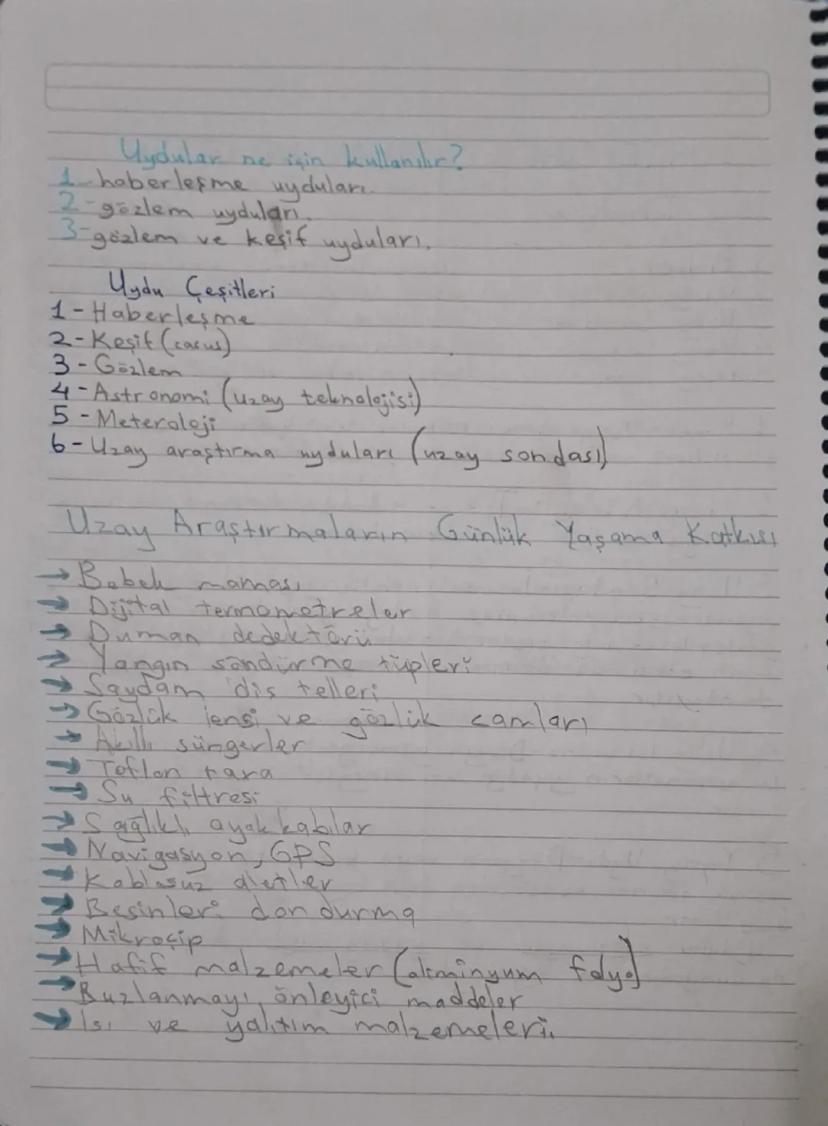 Uydular ne için kullanılır?
1-haberleşme uyduları.
2-gözlem uyduları.
3-gözlem ve keşif uyduları.
Uydu Çeşitleri
1-Haberleşme
2-Keşif (casus)
3-Gözlem
4-Astronomi (uzay teknolojisi)
5-Meteroloji
6-Uzay araştırma uyduları (uzay sondası)
Uzay Araştırmaların Günlük Yaşama Katkısı
→ Bebek maması
→ Dijital termometreler
→ Duman dedektörü
→ Yangın söndürme tüpleri
→ Saydam diş telleri
→ Gözlük lensi ve gözlük camları
→ Akıllı süngerler
→ Teflon tava
→ Su filtresi
→ Sağlıklı ayakkabılar
→ Navigasyon, GPS
→ Kablosuz aletler
→ Besinleri dondurma
→ Mikroçip
→ Hafif malzemeler (alüminyum folyo)
→ Buzlanmayı önleyici maddeler
→ Isı ve yalıtım malzemeleri.